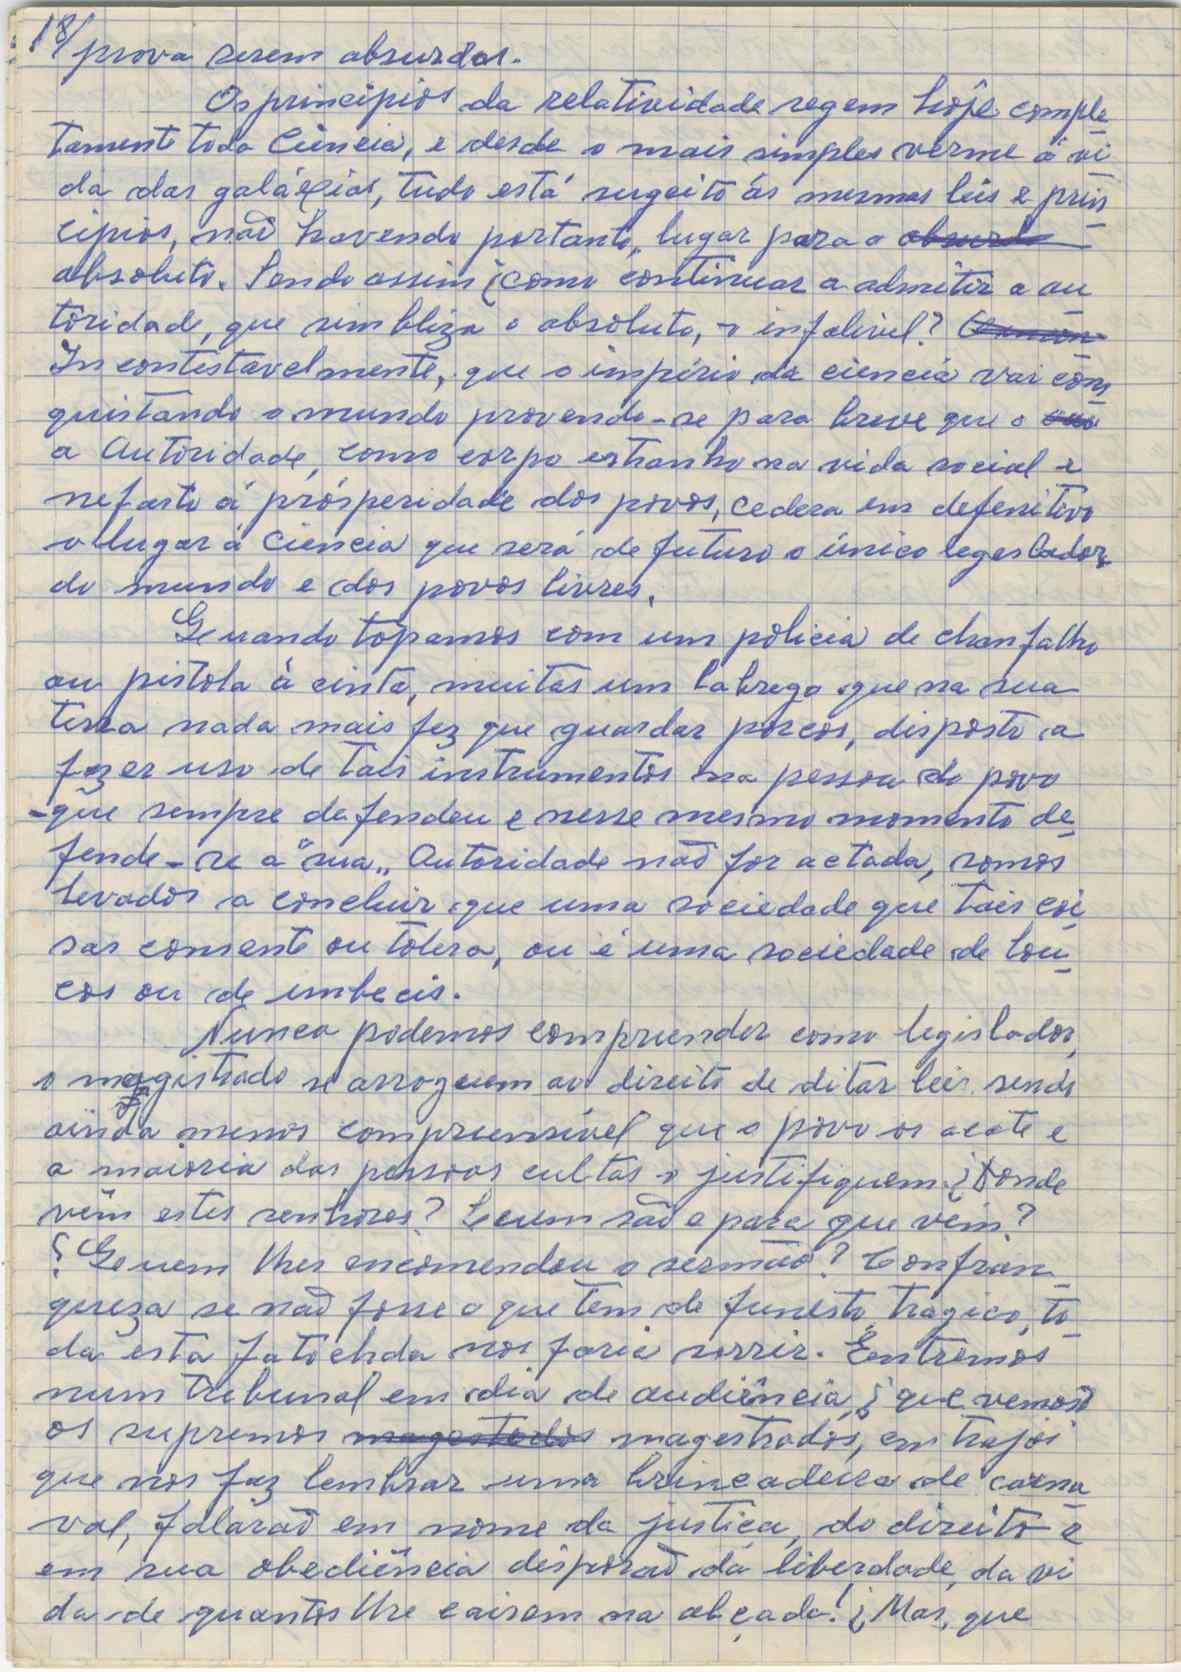 18/ prova serem absurdos.
Os principios da relatividade regem hoje comple
tamente toda Ciência, e desde o mais simples verme á vi
da das galáxias, tudo está sugeito ás mesmas leis e prin
cipios, não havendo portanto, lugar para o absurdo
absoluto. Sendo assim ¿como continuar a admitir a au
toridade, que simbliza o absoluto, o infalivel?
Incontestavelmente, que o império da ciencia vai con
quistando o mundo provendo-se para breve que o
a Autoridade, como corpo estranho na vida social e
nefasto á prósperidade dos povos, cedera em defenitivo
o lugar á Ciencia que será de futuro o único legeslador
do mundo e dos povos livres.
Quando topamos com um policia de chanfalho
ou pistola á cinta, muitas um labrego que na sua
terra nada mais fez que guardar porcos, disposto a
fazer uso de tais instrumentos na pessoa do povo
-que sempre defendeu e nesse mesmo momento de
fende-se a "sua" Autoridade não for actada, somos
levados a concluir que uma sociedade que tais coi
sas consente ou tolera, ou é uma sociedade de lou
cos ou de imbecis.
Nunca podemos compreender como legislador,
o magistrado se arroguem ao direito de ditar leis sendo
ainda menos compreensível que o povo os acate e
a maioria das pessoas cultas o justifiquem ¿Donde
vêm estes senhores? Quem são e para que vêm?
¿Quem lhes encomendou o sermão? Confran
queza se não fosse o que tem de funesto, tragico, to
da esta fatochada nos faria sorrir. Entremos
num tribunal em dia de audiência, ¿que vemos?
os supremos magestados magestrados, em trajos
que nos faz lembrar uma brincadeira de carna
val, falarão em nome da justiça, do direito e
em sua obediência disporão da liberdade, da vi
da de quantos lhe cairem na alçada! ¿Mas, que